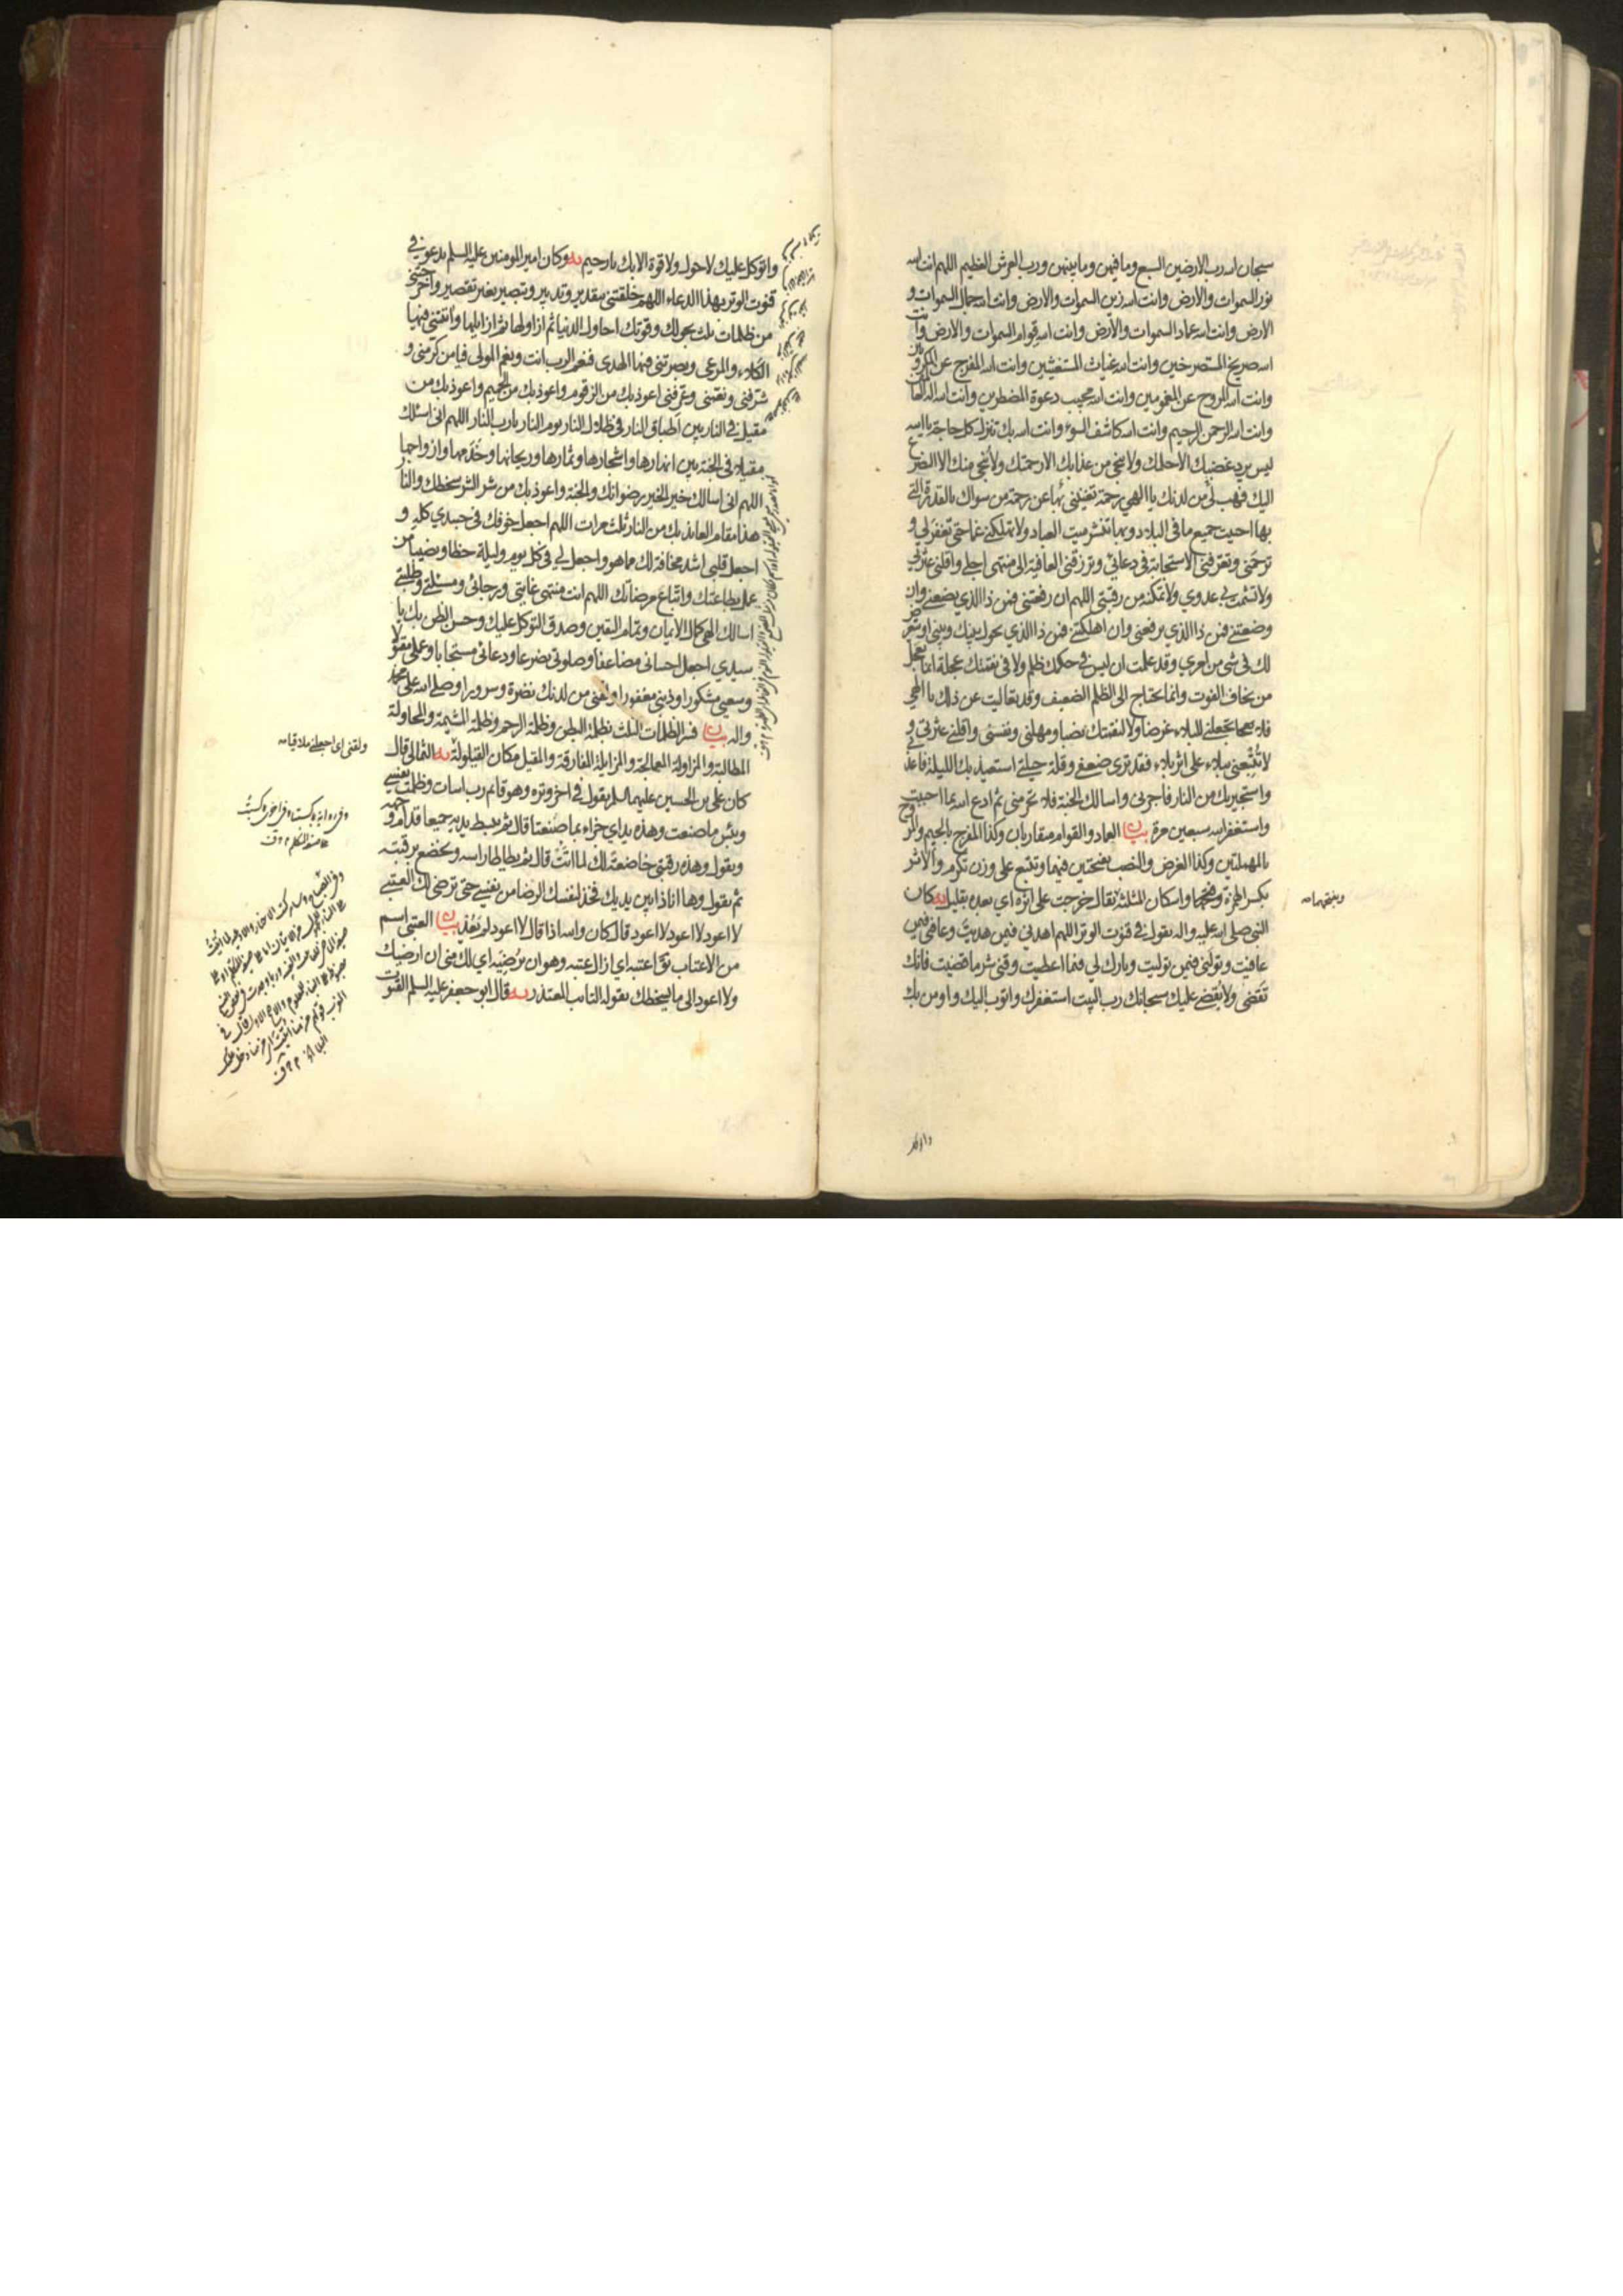 سبحان الله رب الارضين السبع وما فيهن وما بينهن ورب العرش العظيم اللهم انت الله
نور السموات والارض وانت الله زين السموات والارض وانت الله جمال السموات و
الارض وانت الله عماد السموات والارض وانت الله قوام السموات والارض وانت
الله صريخ المستصرخين وانت الله غياث المستغيثين وانت الله المفرج عن المكروبين
وانت الله المروح عن المغمومين وانت الله مجيب دعوة المضطرين وانت الله اله العالمين
وانت الله الرحمن الرحيم وانت الله كاشف السوء وانت الله بك تنزل كل حاجة يا الله
ليس يرد غضبك الا حلمك ولا ينجي من عذابك الا رحمتك ولا ينجي منك الا التضرع
اليك فهب لي من لدنك يا الهي رحمة تغنيني بها عن رحمة من سواك بالقدرة التي
بها احييت جميع ما في البلاد وبها تنشر ميت العباد ولا تهلكني غما حتى تغفر لي و
ترحمني وتعرفني الاستجابة في دعائي وترزقني العافية الى منتهى اجلي واقلني عثرتي
ولا تشمت بي عدوي ولا تمكنه من رقبتي اللهم ان رفعتني فمن ذا الذي يضعني وان
وضعتني فمن ذا الذي يرفعني وان اهلكتني فمن ذا الذي يحول بينك وبيني او يتعرض
لك في شي من امري وقد علمت ان ليس في حكمك ظلم ولا في نقمتك عجلة انما يعجل
من يخاف الفوت وانما يحتاج الى الظلم الضعيف وقد تعاليت عن ذلك يا الهي
فلا تجعلني للبلاء غرضا ولا لنقمتك نصبا ومهلني ونفسني واقلني عثرتي و
لا تتبعني ببلاء على اثر بلاء فقد ترى ضعفي وقلة حيلتي استعيذ بك الليلة فاعذني
واستجير بك من النار فاجرني واسالك الجنة فلا تحرمني ثم ادع الله بما احببت
واستغفر الله سبعين مرة بيان العماد والقوام متقاربان وكذا المفرج بالجيم والمروح
بالمهملتين وكذا الغرض والنصب بفتحتين فيهما وتتبع على وزن تكرم والاثر
بكسر الهمزة وفتحها واسكان المثلثة يقال خرجت على اثره اي بعده بقليل يه كان
النبي صلى الله عليه واله يقول في قنوت الوتر اللهم اهدني فيمن هديت وعافني فيمن
عافيت وتولني فيمن توليت وبارك لي فيما اعطيت وقني شر ما قضيت فانك
تقضي ولا يقضى عليك سبحانك رب البيت استغفرك واتوب اليك واومن بك
وبفتحهما منه
واتوكل عليك لا حول ولا قوة الا بك يا رحيم يه وكان امير المومنين عليه السلم يدعو في
قنوت الوتر بهذا الدعاء اللهم خلقتني بتقدير وتدبير وتبصير بغير تقصير واخرجتني
من ظلمات ثلث بحولك وقوتك احاول الدنيا ثم ازاولها ثم ازايلها واتيتني فيها
الكلاء والمرعى وبصرتني فيها الهدى فنعم الرب انت ونعم المولى فيا من كرمني و
شرفني ونعمني وعرفني اعوذ بك من الزقوم واعوذ بك من الحميم واعوذ بك من
مقيل في النار بين اطباق النار في ظلال النار يوم النار يا رب النار اللهم اني اسئلك
مقيلا في الجنة بين انهارها واشجارها وثمارها وريحانها وخدمها وازواجها
اللهم اني اسالك خير الخير رضوانك والجنة واعوذ بك من شر الشر سخطك والنار
هذا مقام العائذ بك من النار ثلث مرات اللهم اجعل خوفك في جسدي كله و
اجعل قلبي اشد مخافة لك مما هو واجعل لي في كل يوم وليلة حظا ونصيبا من
عمل بطاعتك واتباع مرضاتك اللهم انت منتهى غايتي ورجائي ومسئلتي وطلبتي
اسالك الهي كمال الايمان وتمام اليقين وصدق التوكل عليك وحسن الظن بك يا
سيدي اجعل احساني مضاعفا وصلوتي تضرعا ودعائي مستجابا وعملي مقبولا
وسعيي مشكورا وذنبي مغفورا ولقني من لدنك نضرة وسرورا وصلى الله على محمد
واله بيان فسر الظلمات الثلث بظلمة البطن وظلمة الرحم وظلمة المشيمة والمحاولة
المطالبة والمزاولة المعالجة والمزايلة المفارقة والمقيل مكان القيلولة يه الثمالي قال
كان علي بن الحسين عليهما السلم يقول في اخر وتره وهو قائم رب اسات وظلمت نفسي
وبئس ما صنعت وهذه يداي جزاء بما صنعتا قال ثم يبسط يديه جميعا قدام وجهه
ويقول وهذه رقبتي خاضعة لك لما اتت قال ثم يطاطا راسه ويخضع برقبته
ثم يقول وها انا ذا بين يديك فخذ لنفسك الرضا من نفسي حتى ترضى لك العتبى
لا اعود لا اعود لا اعود قال كان والله اذا قال لا اعود لم يعد بيان العتبى اسم
من الاعتاب يق اعتبه اي ازال عتبه وهو ان يرضيه اي لك مني ان ارضيك
ولا اعود الى ما يسخطك يقوله التائب المعتذر يه قال ابو جعفر عليه السلم القنوت
ولقني اي اجعلني ملاقيا منه